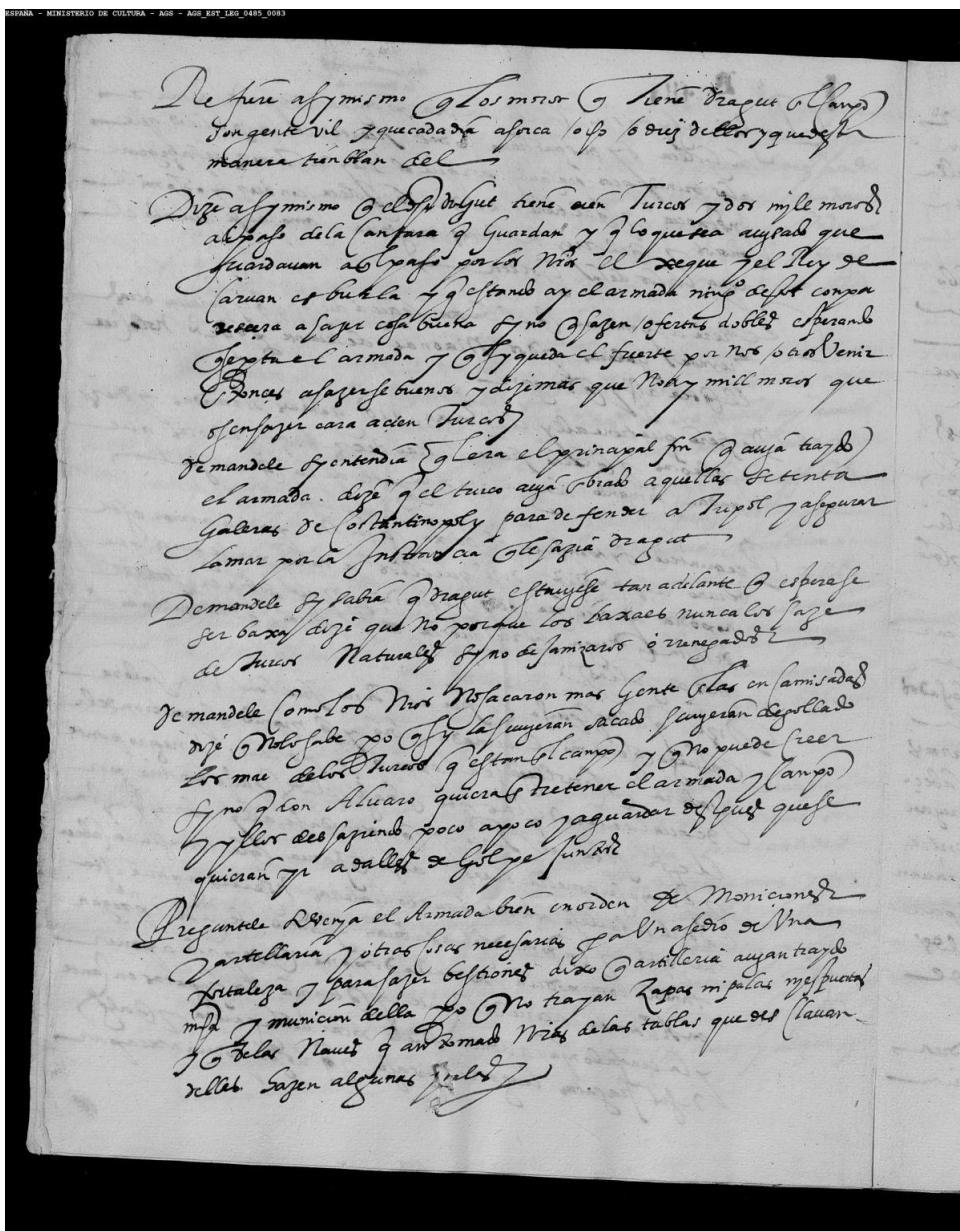 ESPAÑA - MINISTERIO DE CULTURA - AGS - AGS_EST_LEG_0485_0083
Refiere asymismo q los moros q tiene dragut en el campo
son gente vil y que cada dia aforca ocho o diez dellos y que desta
manera tienblan del
Dize asymismo q el dho dragut tiene cien Turcos y dos myle moros
al paso de la Cantara q Guardan y q lo que sea avysado que
guardavan al paso por los nros el xeque y el Rey de
Caruan es burla y q estando ay el armada ningo destos conpa
resera a fazer cosa buena syno q fazen ofertas dobles esperando
q se parta el armada y q sy queda el fuerte por nosotros venir
Entonces a fazerse buenos y dize mas que no ay mill moros que
osen fazer cara a cien Turcos
Demandele sy entendia q era el principal fin q avia traydo
el armada. dize q el turco avya enbiado aquellas setenta
Galeras de Costantinopoly para defender a Tripol y asegurar
la mar por la Instancia q le fazia dragut
Demandele sy sabia q dragut estuvyese tan adelante q esperase
ser baxa dize que no porque los baxaes nunca los faze
de Turcos Naturales syno de janizaros o rrenegados
Demandele Como los nros no sacaron mas Gente en las encamisadas
dize q no lo sabe po q sy la huvyeran sacado huvyeran degollado
los mas de los Turcos q estan en el canpo y q no puede creer
syno q don Alvaro quiera Entretener el armada y canpo
y yllos desfaziendo poco a poco y aguardar despues que se
quieran yr a dalles de Golpe juntos
Preguntele sy venya el Armada bien en orden de Moniciones
y artelleria y otras cosas necesarias pa Un asedio de Una
fortaleza y para fazer bestiones dixo q artilleria avyan traydo
mucha y municion della po q no trayan Zapas ni palas ny espuertas
y q de las Naves q an tomado nras de las tablas que desclavan
delles hazen algunas palas